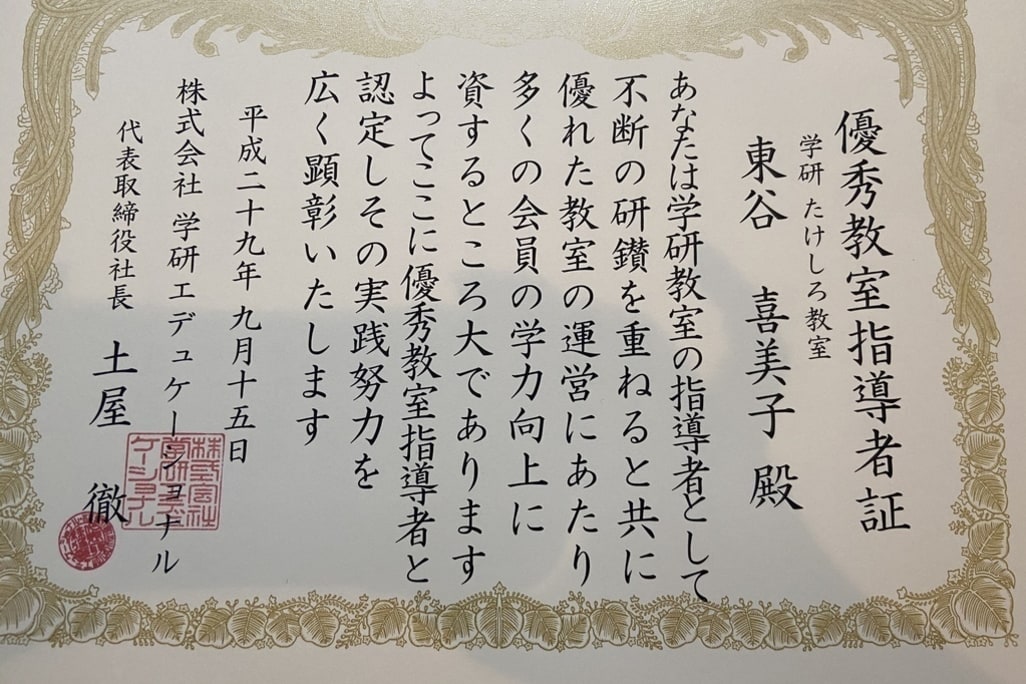 優秀教室指導者証
学研 たけしろ教室
東谷 喜美子 殿
あなたは学研教室の指導者として
不断の研鑚を重ねると共に
優れた教室の運営にあたり
多くの会員の学力向上に
資するところ大であります
よってここに優秀教室指導者と
認定しその実践努力を
広く顕彰いたします
平成二十九年 九月十五日
株式会社 学研エデュケーショナル
代表取締役社長 土屋 徹
株式会社
学研エデュ
ケーショナル